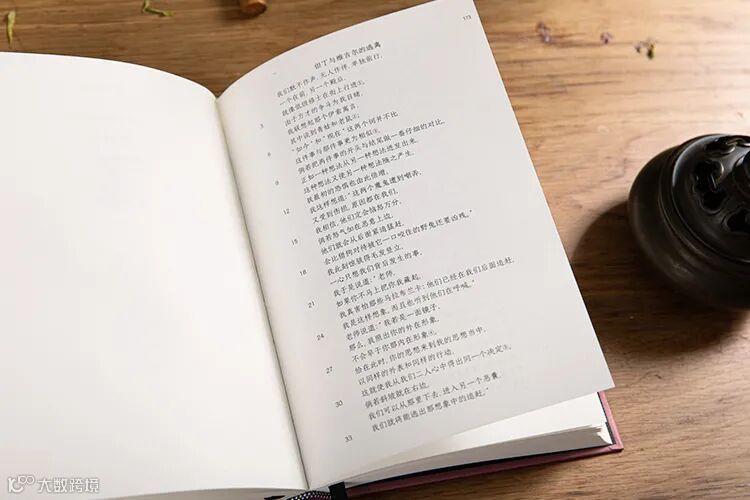 173
但丁与维吉尔的逃离
我们默不作声,无人作伴,单独前行,
一个在前,另一个殿后,
就像低级修士在街上行进①。
3
由于方才的争斗为我目睹,
我联想起那个伊索寓言,
其中谈到青蛙和老鼠②;
6
“如今”和“现在”这两个词并不比
这件事与那件事更为相似③,
倘若把两件事的开头与结尾做一番仔细的对比。
9
正如一种想法从另一种想法迸发出来,
这种想法又使另一种想法随之产生,
我最初的恐惧也由此倍增。
12
我这样想道:“这两个魔鬼遭到嘲弄,
又受到伤损,原因都在我们,
我相信,他们定会恼怒万分。
15
倘若怒气加在恶意上边,
他们就会从后面紧追猛赶,
会比猎狗对待被它一口咬住的野兔还要凶残。”
18
我此刻惊骇得毛发竖立,
一心只想我们背后发生的事,
我于是说道:“老师,
21
如果你不马上把你我藏起,
我真害怕那些马拉布兰卡:他们已经在我们后面追赶,
我是这样想象,而且也听到他们在呼喊。”
24
老师说道:“我若是一面镜子,
那么,我照出你的外在形象,
不会早于你那内在形象④。
27
恰在此时,你的思想来到我的思想当中,
以同样的外表和同样的行动,
这就使我从我们二人心中得出同一个决定⑤。
30
倘若斜坡就在右边,
我们可以从那里下去,进入另一个恶囊,
我们就将能逃出那想象中的追赶。”
33
大数跨境